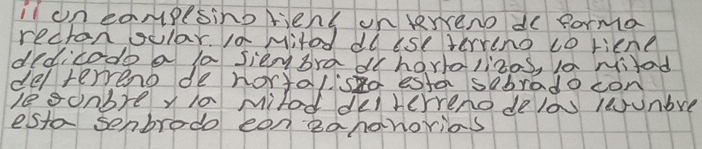 11 un campesino tiene un terreno de forma
rectangular. la mitad de ese terreno lo tiene
dedicado a la siembra de hortalizas, la mitad
del terreno de hortaliza esta sebrado con
legunbre y la mitad del terreno de las legunbre
esta senbrado con zanahorias